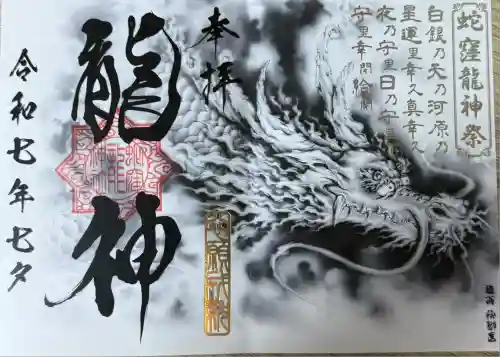 蛇窪龍神祭
白銀乃天乃河原乃
星運里幸久真幸久
夜乃守里日乃守里
守里幸閇給閇
奉拝
龍神
心願成就
令和七年七夕